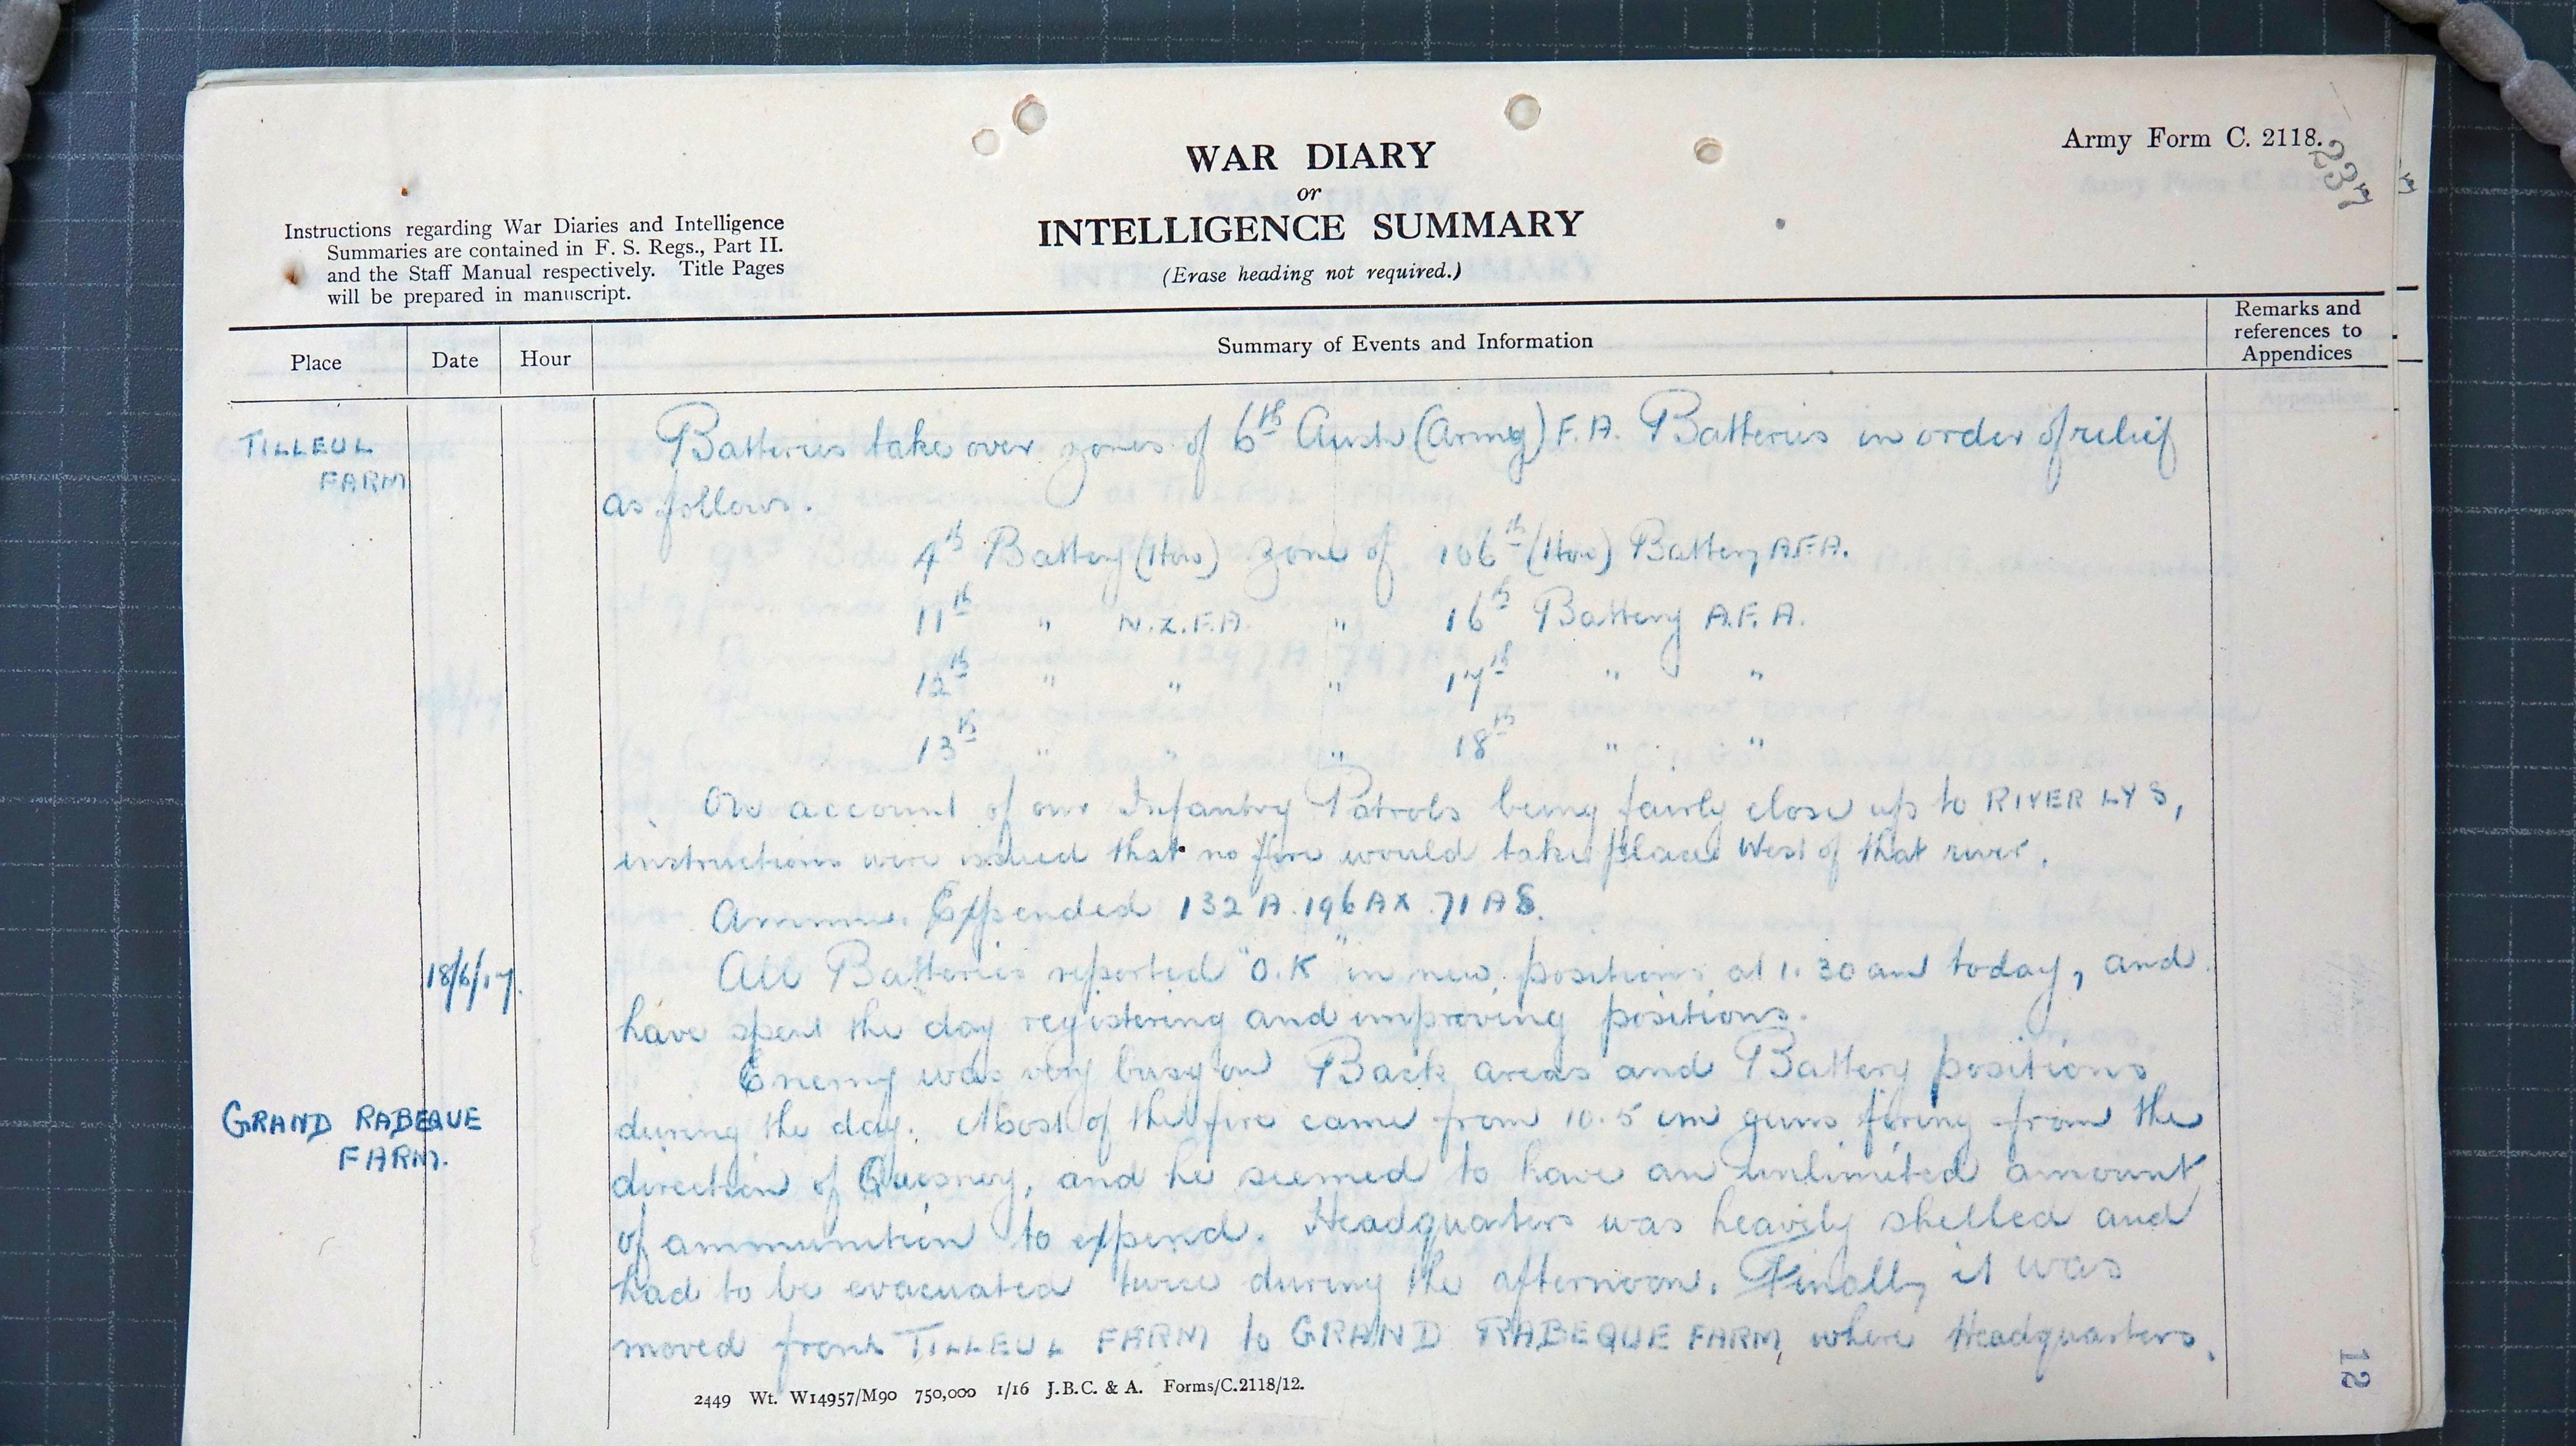 Army Form C. 2118.
237
WAR DIARY
or
INTELLIGENCE SUMMARY
(Erase heading not required.)
Instructions regarding War Diaries and Intelligence
Summaries are contained in F. S. Regs., Part II.
and the Staff Manual respectively. Title Pages
will be prepared in manuscript.
Place Date Hour Summary of Events and Information Remarks and references to Appendices
TILLEUL
FARM
Batteries take over zones of 6th Aust (Army) F.A. Batteries in order of relief
as follows.
4th Battery (How) zone of 106th (How) Battery A.F.A.
11th " N.Z.F.A. " 16th Battery A.F.A.
12th " " " 17th " "
13th " " " 18th " "
On account of our Infantry Patrols being fairly close up to RIVER LYS,
instructions were issued that no fire would take place West of that river.
Ammn. Expended 132 A. 196 AX. 71 AS.
18/6/17. All Batteries reported "O.K" in new positions at 1.30 am today, and
have spent the day registering and improving positions.
Enemy was very busy on Back areas and Battery positions
GRAND RABEQUE
FARM.
during the day. Most of the fire came from 10.5 cm guns firing from the
direction of Quesnoy, and he seemed to have an unlimited amount
of ammunition to expend. Headquarters was heavily shelled and
had to be evacuated twice during the afternoon. Finally it was
moved from TILLEUL FARM to GRAND RABEQUE FARM, where Headquarters.
2449 Wt. W14957/M90 750,000 1/16 J.B.C. & A. Forms/C.2118/12.
12